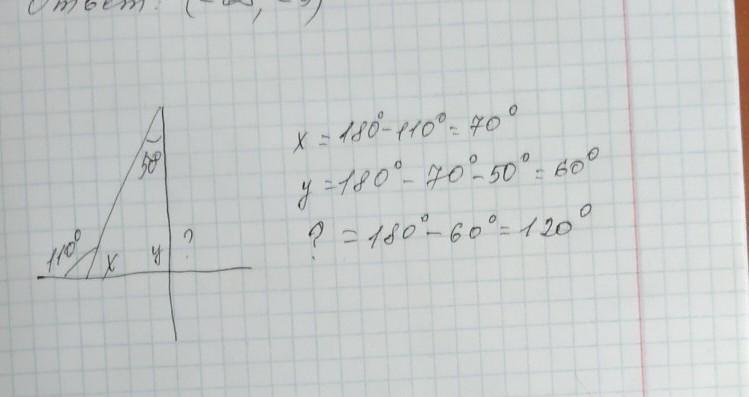 Ответ: (-∞, -3)
50°
110°
x y ?
x = 180° - 110° = 70°
y = 180° - 70° - 50° = 60°
? = 180° - 60° = 120°